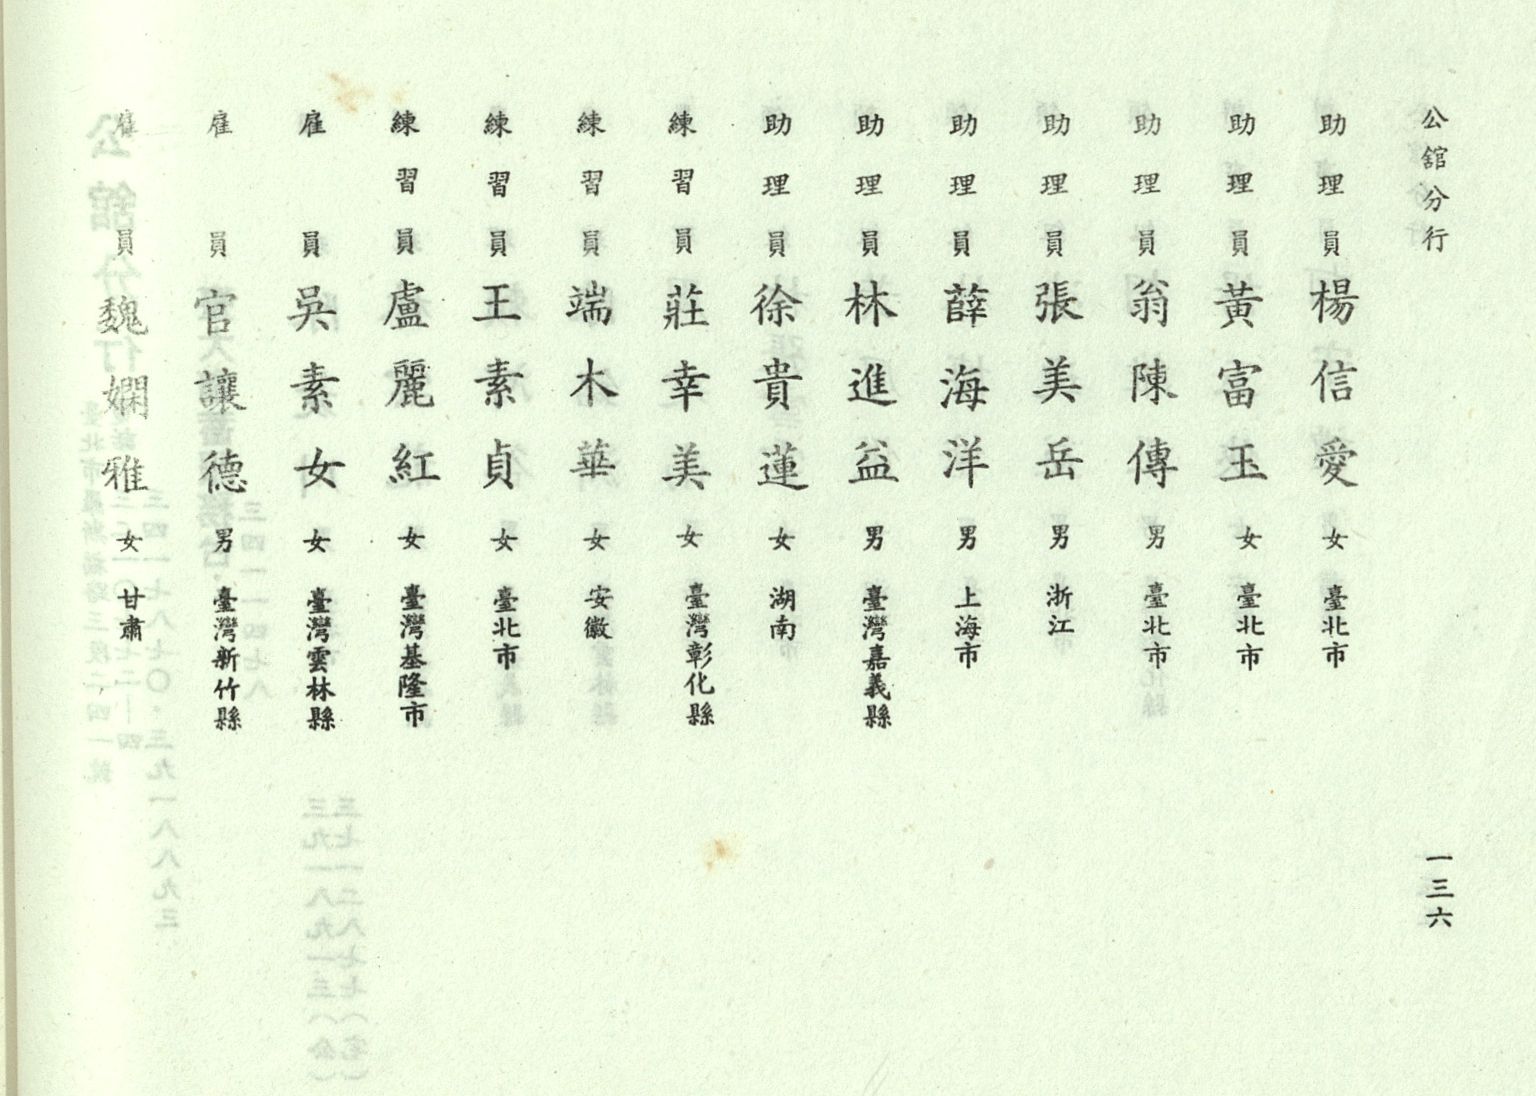 公舘分行
一三六
助理員 楊信愛 女 臺北市
助理員 黃富玉 女 臺北市
助理員 翁陳傳 男 臺北市
助理員 張美岳 男 浙江
助理員 薛海洋 男 上海市
助理員 林進益 男 臺灣嘉義縣
助理員 徐貴蓮 女 湖南
練習員 莊幸美 女 臺灣彰化縣
練習員 端木華 女 安徽
練習員 王素貞 女 臺北市
練習員 盧麗紅 女 臺灣基隆市
雇員 吳素女 女 臺灣雲林縣
雇員 官讓德 男 臺灣新竹縣
雇員 魏嫻雅 女 甘肅